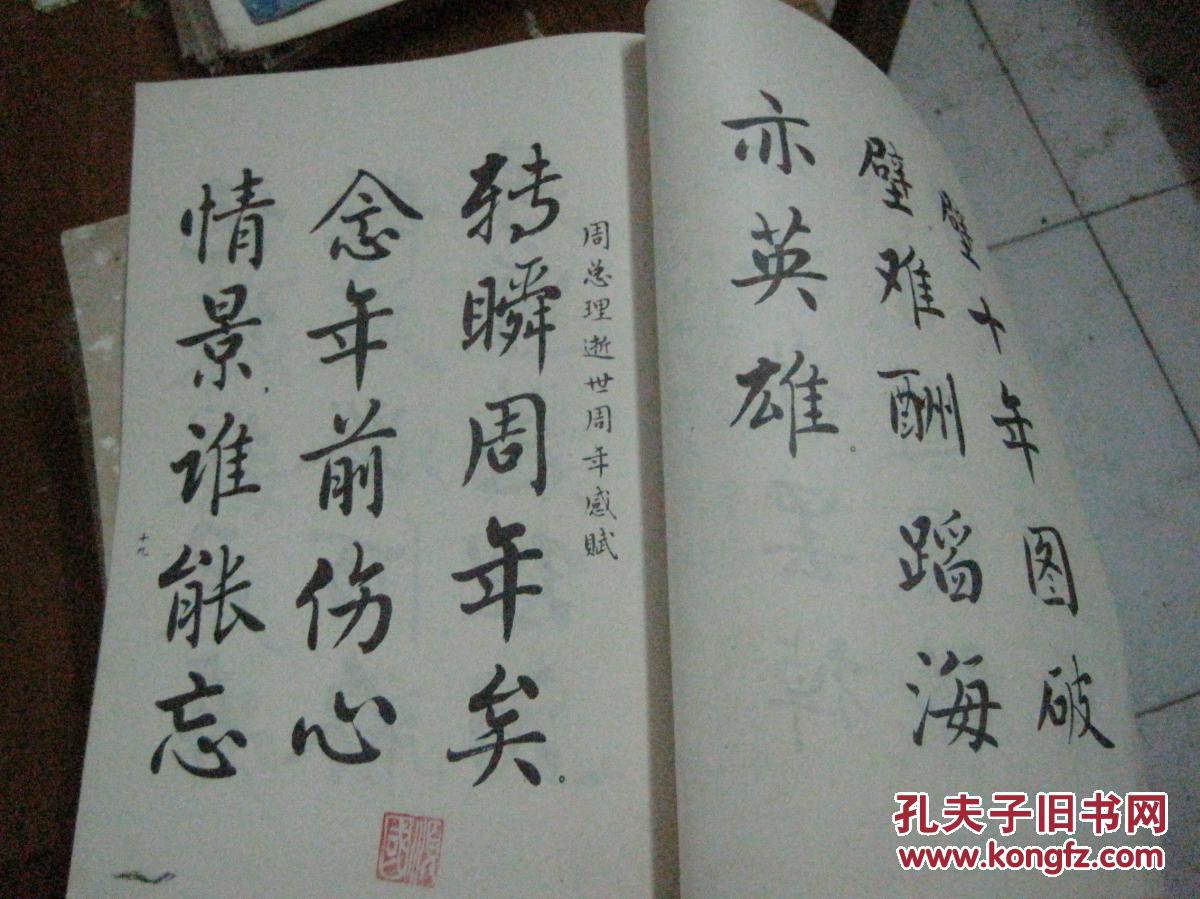 壁十年图破
壁难酬蹈海
亦英雄。
周总理逝世周年感赋
转瞬周年矣。
念年前伤心
情景，谁能忘
十九
孔夫子旧书网
www.kongfz.com